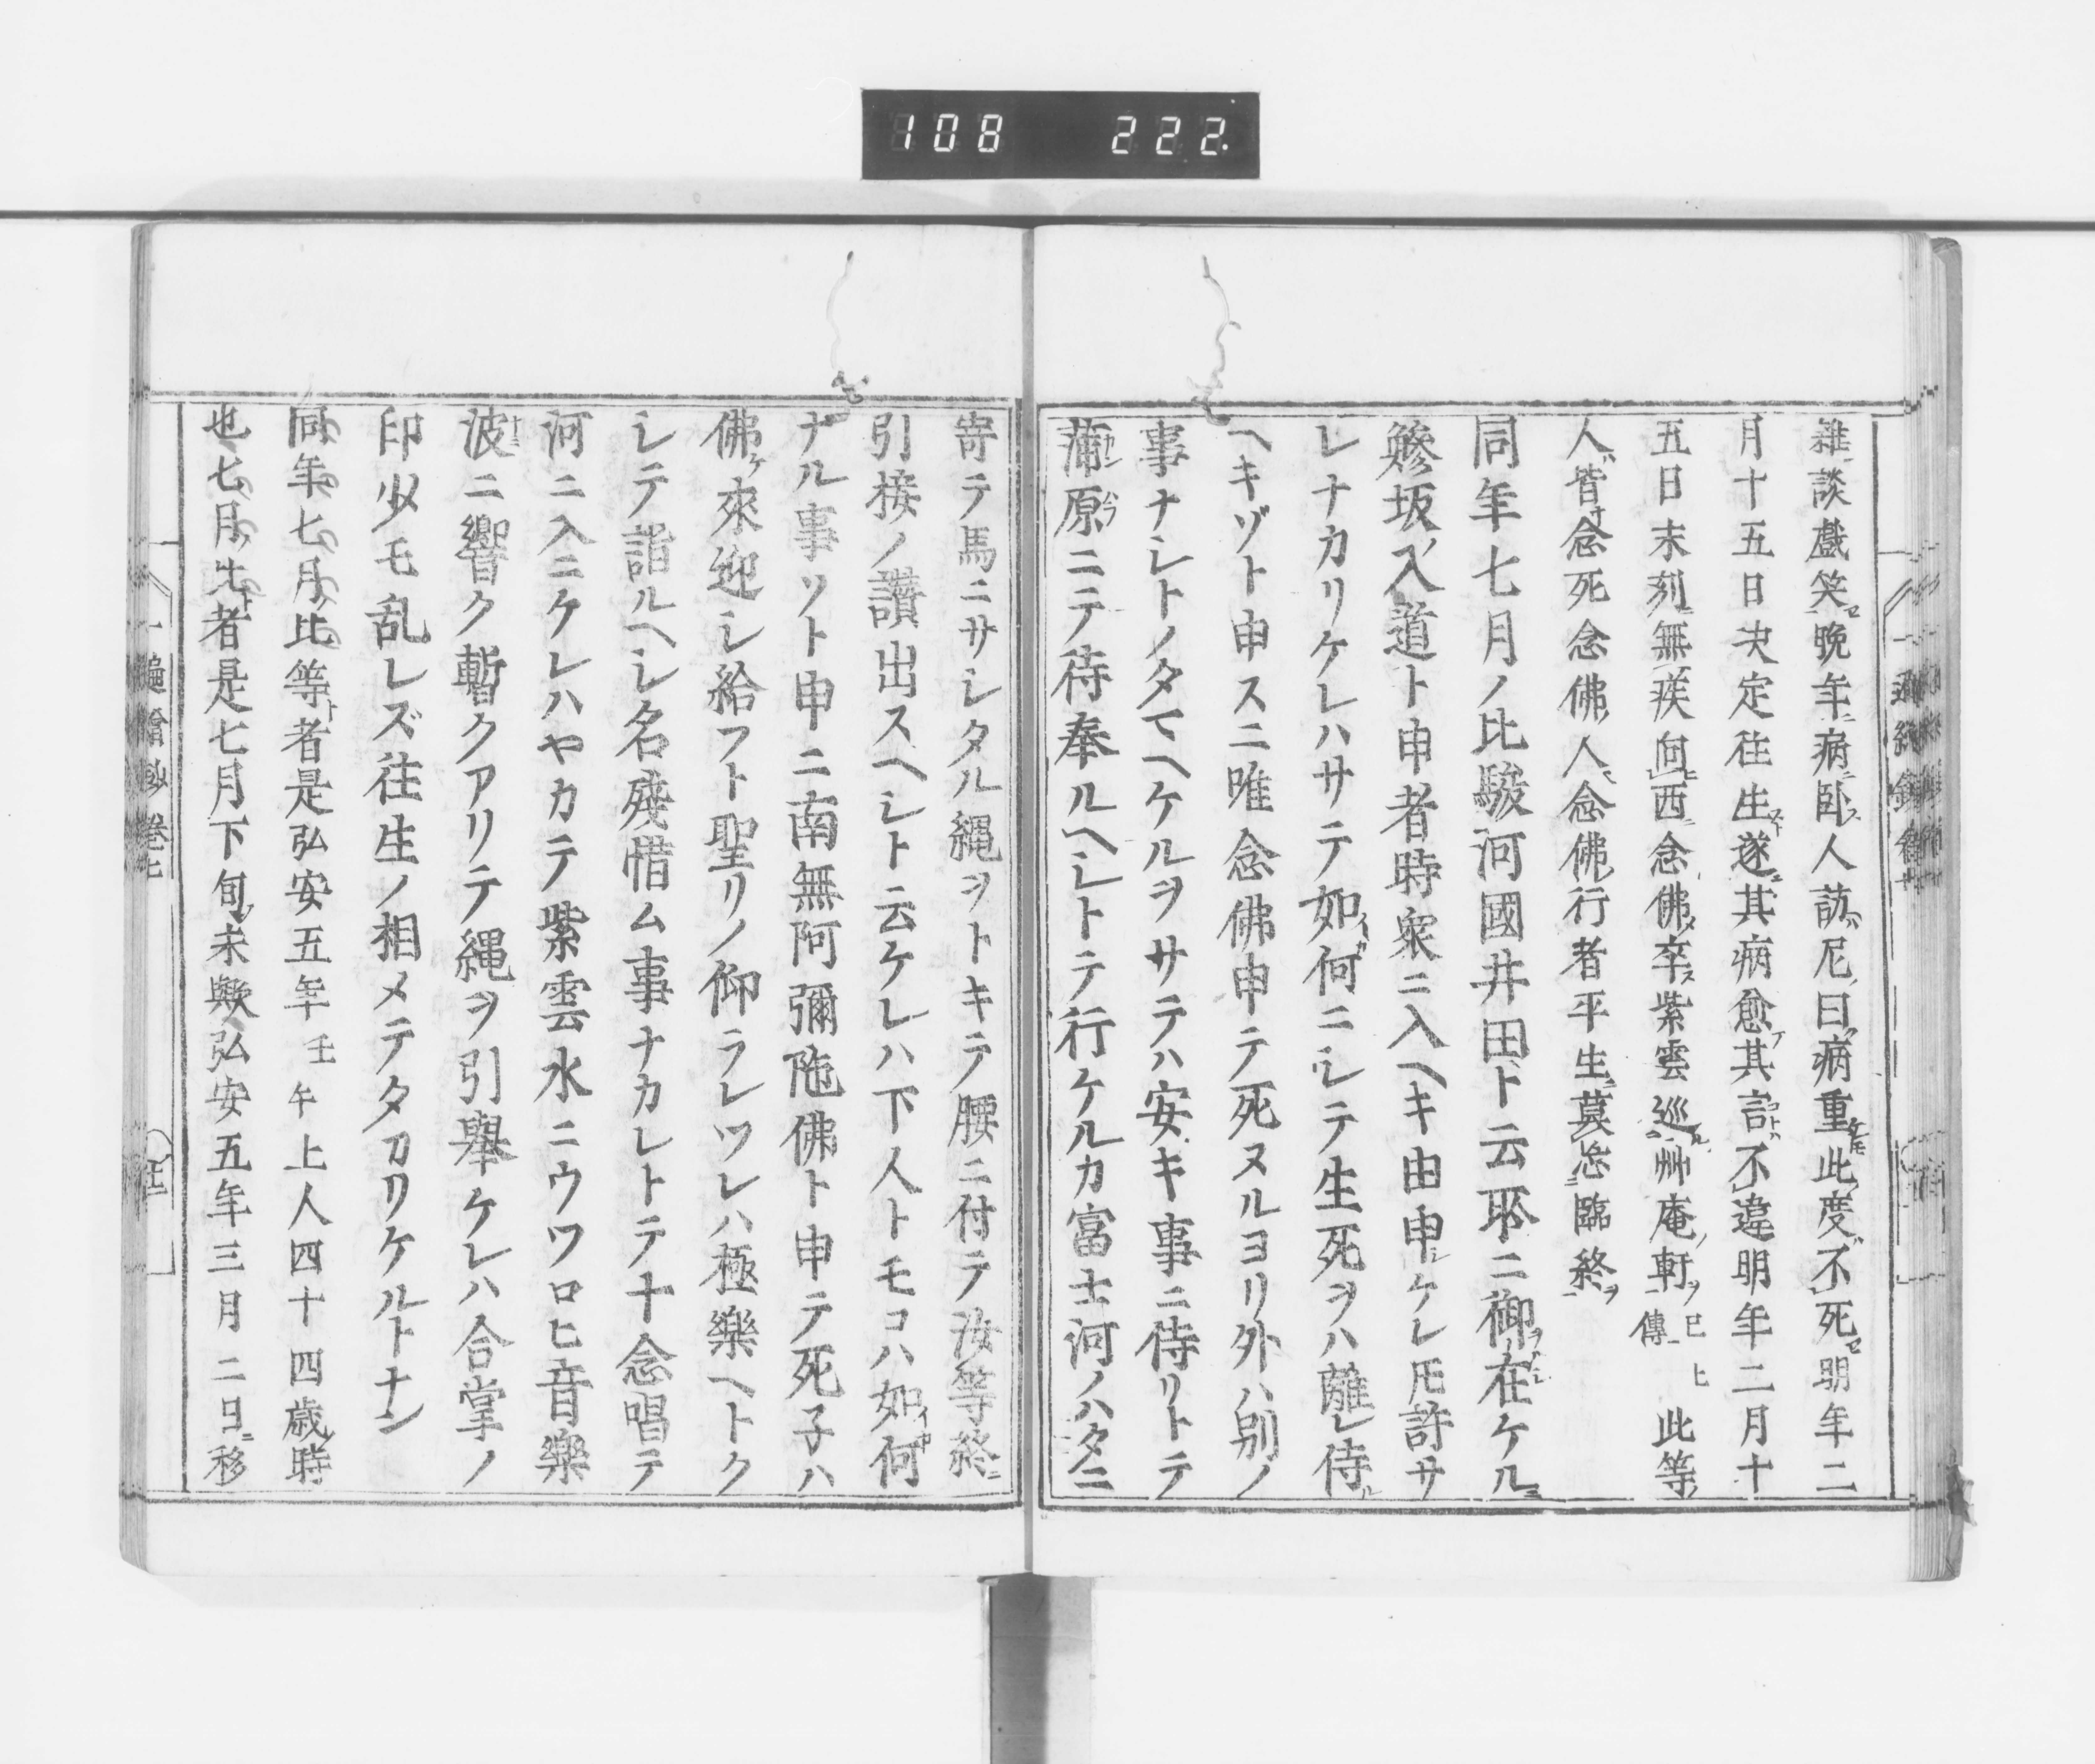 108 222
雜談戲笑晩年病臥人訪尼曰病重此度不死明年二
月十五日决定往生遂其病愈其言不違明年二月十
五日末刻無疾向西念佛卒紫雲巡艸庵軒傳已上此等
人皆念死念佛人念佛行者平生莫忘臨終
同年七月ノ比駿河國井田ト云所ニ御在ケルニ
鰺坂入道ト申者時衆ニ入ヘキ由申ケレ𪜈許サ
レナカリケレハサテ如何ニシテ生死ヲハ離レ侍ル
ヘキゾト申スニ唯念佛申テ死ヌルヨリ外ハ別ノ
事ナシトノタマヘケルヲサテハ安キ事ニ侍リトテ
蒲原ニテ待奉ルヘシトテ行ケルカ富士河ノハタニ
寄テ馬ニサシタル縄ヲトキテ腰ニ付テ汝等終ニ
引接ノ讚出スヘシト云ケレハ下人トモコハ如何
ナル事ソト申ニ南無阿彌陁佛ト申テ死子ハ
佛ケ來迎シ給フト聖リノ仰ラレツレハ極樂ヘトク
シテ詣ルヘシ名殘惜ム事ナカレトテ十念唱テ
河ニ入ニケレハヤカテ紫雲水ニウツロヒ音樂
波ニ響ク暫クアリテ縄ヲ引擧ケレハ合掌ノ
印少モ乱レズ往生ノ相メテタカリケルトナン
同年七月比等者是弘安五年壬午上人四十四歳時
也七月ト者是七月下旬末歟弘安五年三月二日移
一遍繪鈔卷七